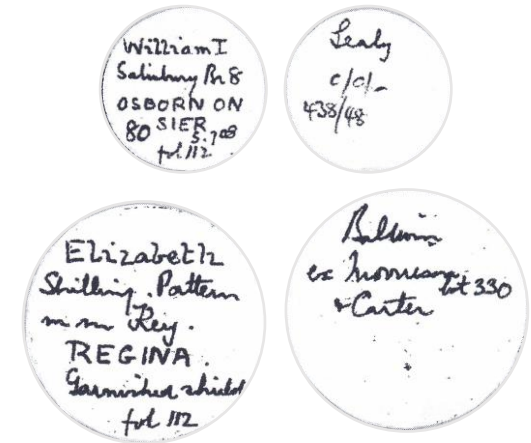 William I
Salisbury Br 8
OSBORN ON
SIER
80 5.708
fol 112
Sealy
c/c/-
438/48
Elizabeth
Shilling. Pattern
m m Key.
REGINA.
Garnished shield
fol 112
Baldwin
ex Morrieson lot 330
& Carter